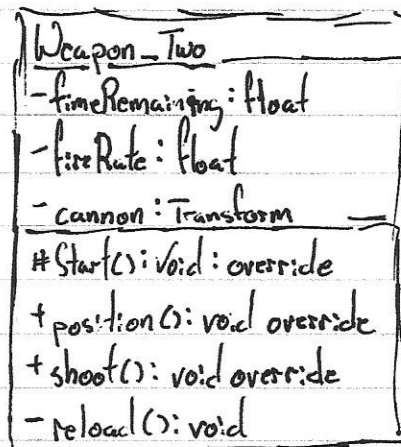 Weapon_Two
- timeRemaining : float
- fireRate : float
- cannon : Transform
# Start() : void : override
+ position() : void override
+ shoot() : void override
- reload() : void